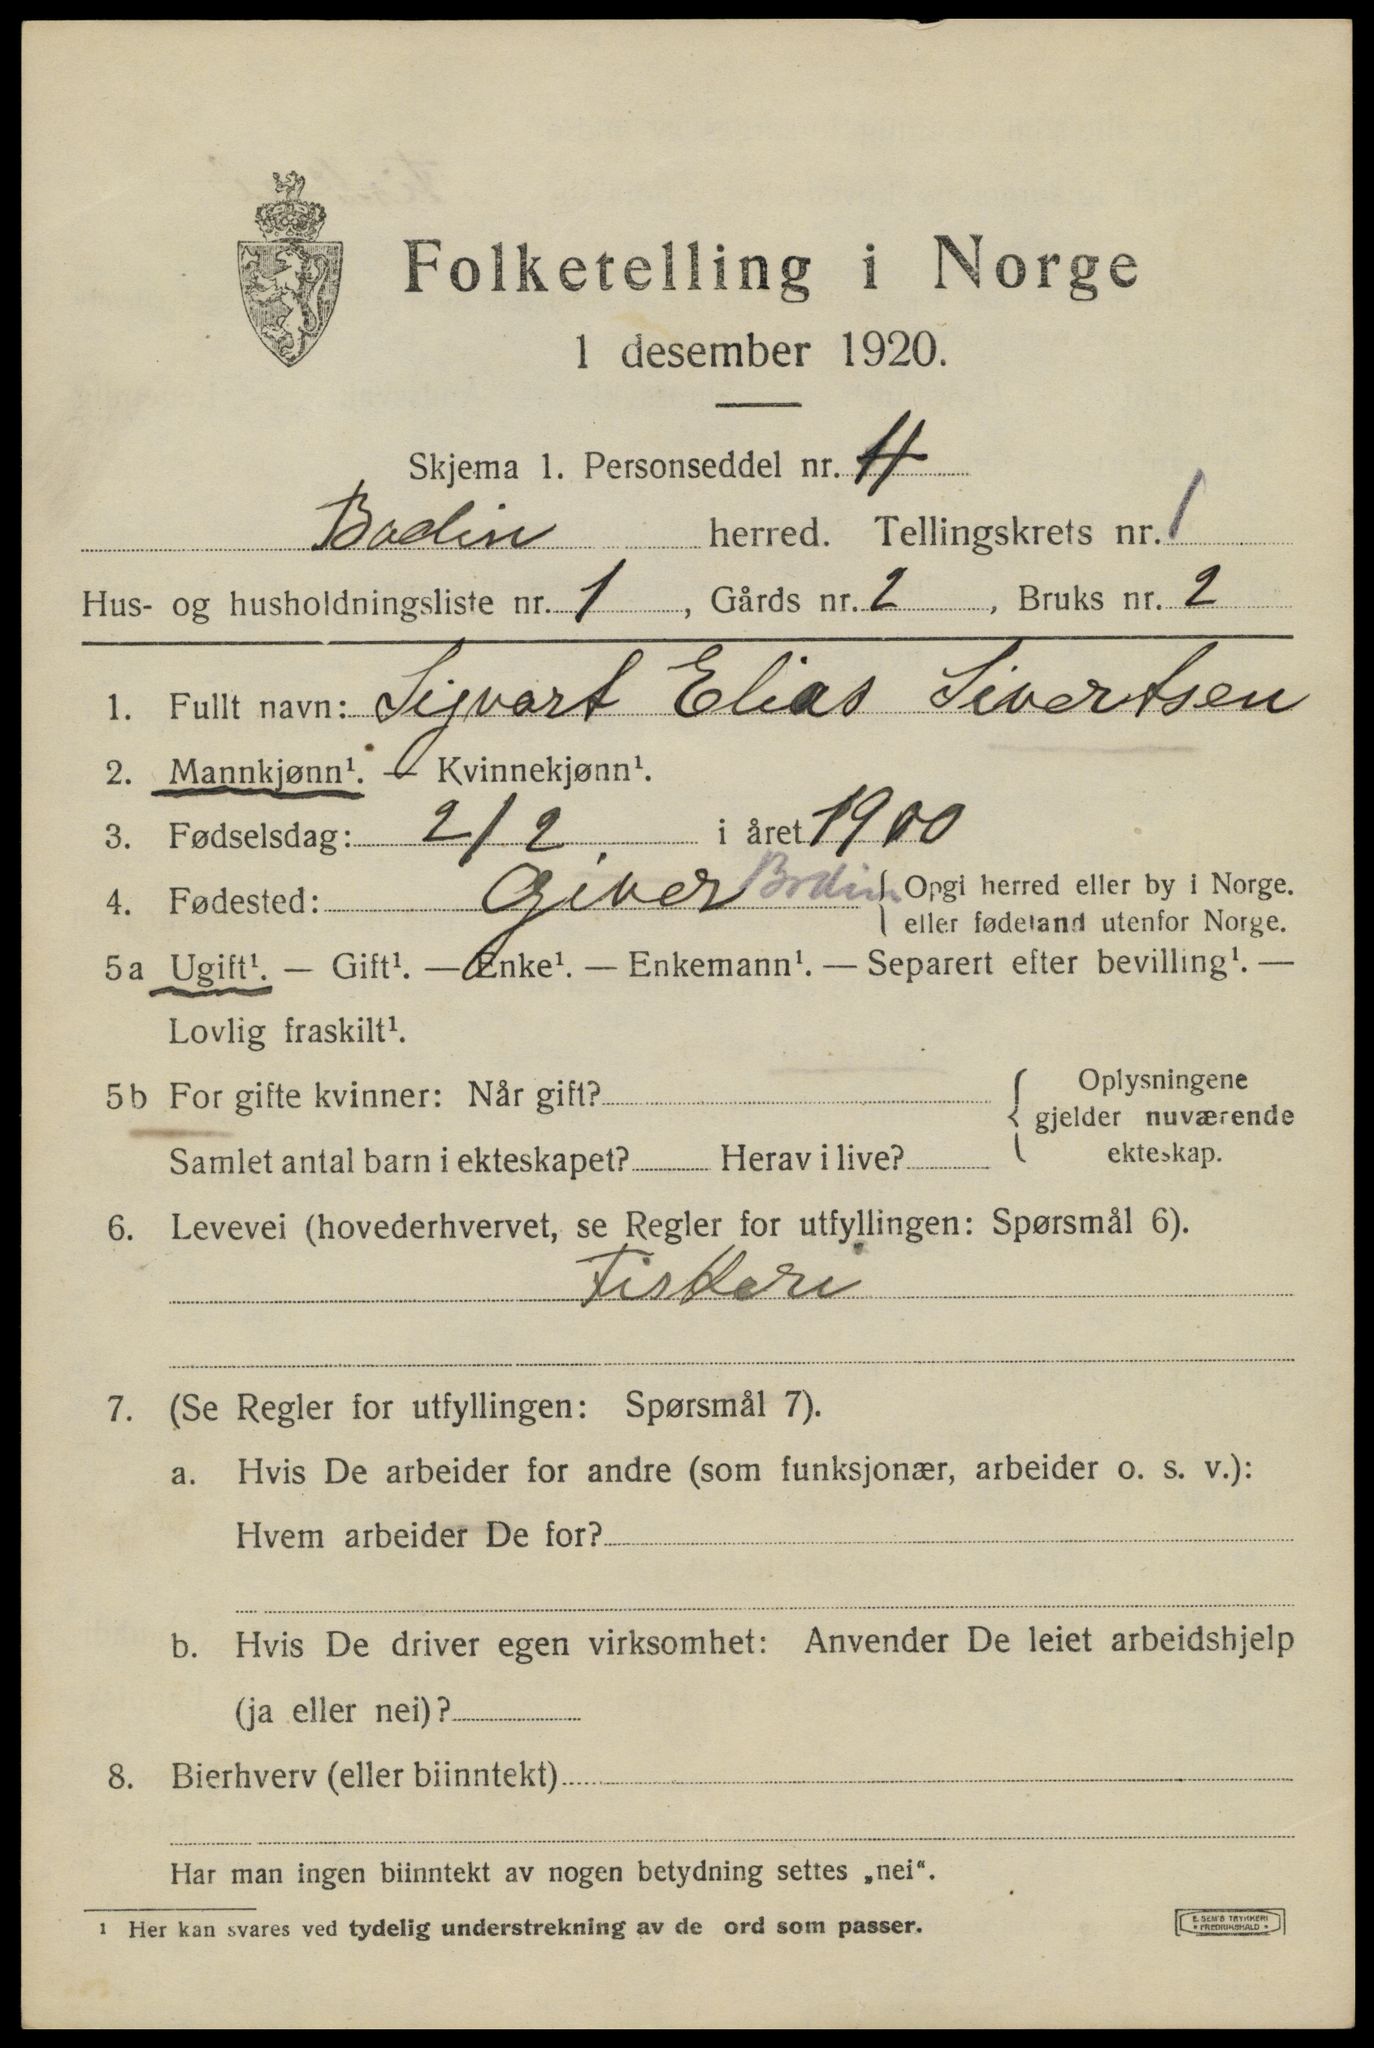 Folketelling i Norge
1 desember 1920.
Skjema 1. Personseddel nr. 4
Bodin herred. Tellingskrets nr. 1
Hus- og husholdningsliste nr. 1, Gårds nr. 2, Bruks nr. 2
1. Fullt navn: Sigvart Elias Sivertsen
2. Mannkjønn¹. — Kvinnekjønn¹.
3. Fødselsdag: 2/2. i året 1900
4. Fødested: Giver Bodin { Opgi herred eller by i Norge.
eller fødeland utenfor Norge.
5a Ugift¹. — Gift¹. — Enke¹. — Enkemann¹. — Separert efter bevilling¹. —
Lovlig fraskilt¹.
5b For gifte kvinner: Når gift?
Samlet antal barn i ekteskapet? Herav i live?
Oplysningene
gjelder nuværende
ekteskap.
6. Levevei (hovederhvervet, se Regler for utfyllingen: Spørsmål 6).
Fiskeri
7. (Se Regler for utfyllingen: Spørsmål 7).
a. Hvis De arbeider for andre (som funksjonær, arbeider o. s. v.):
Hvem arbeider De for?
b. Hvis De driver egen virksomhet: Anvender De leiet arbeidshjelp
(ja eller nei)?
8. Bierhverv (eller biinntekt)
Har man ingen biinntekt av nogen betydning settes „nei“.
¹ Her kan svares ved tydelig understrekning av de ord som passer.
E. SEM'S TRYKKERI
* FREDRIKSHALD *